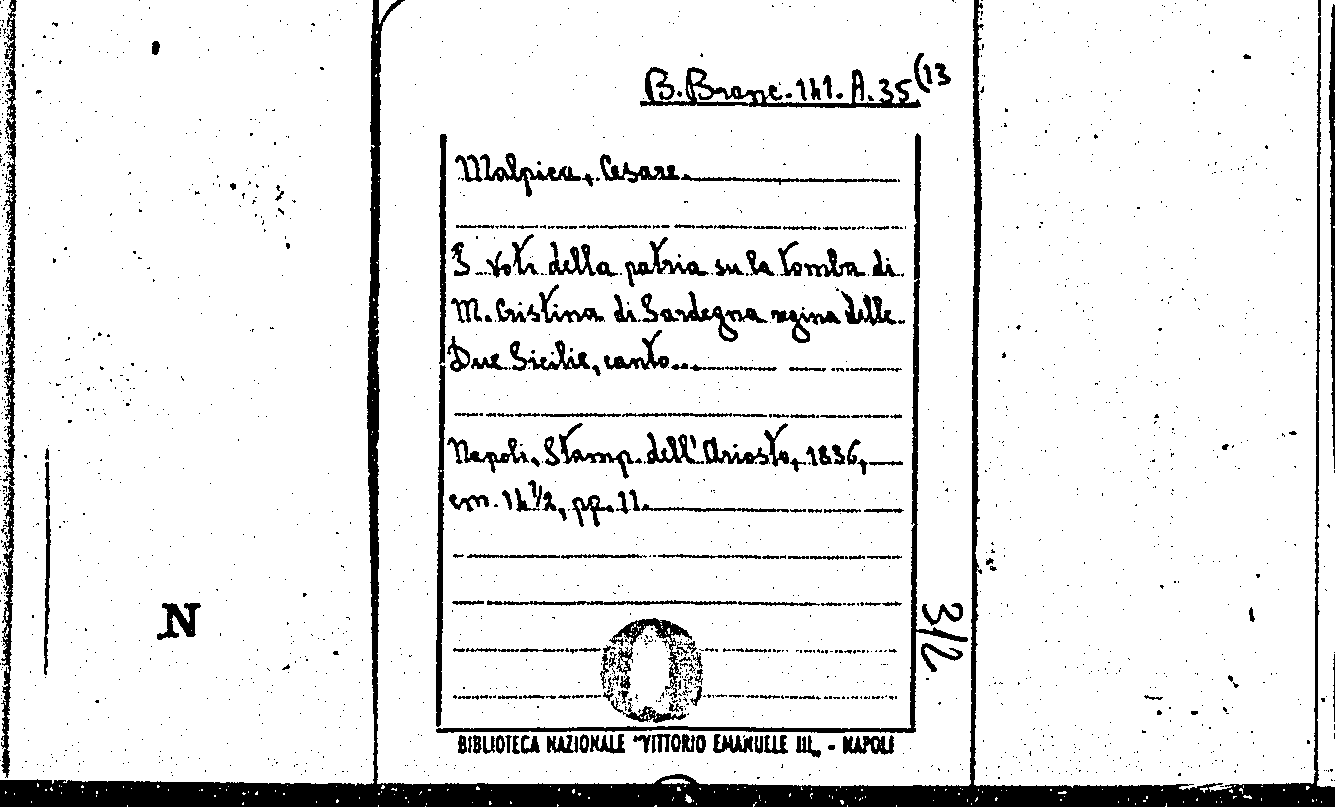 B. Branc. 141. A. 35 (13
Malpica, Cesare.
I voti della patria su la tomba di
M. Cristina di Sardegna regina delle
Due Sicilie, canto...
Napoli, Stamp. dell'Ariosto, 1836,
cm. 14 1/2, pp. 11.
N
312
BIBLIOTECA NAZIONALE "VITTORIO EMANUELE III„ - NAPOLI